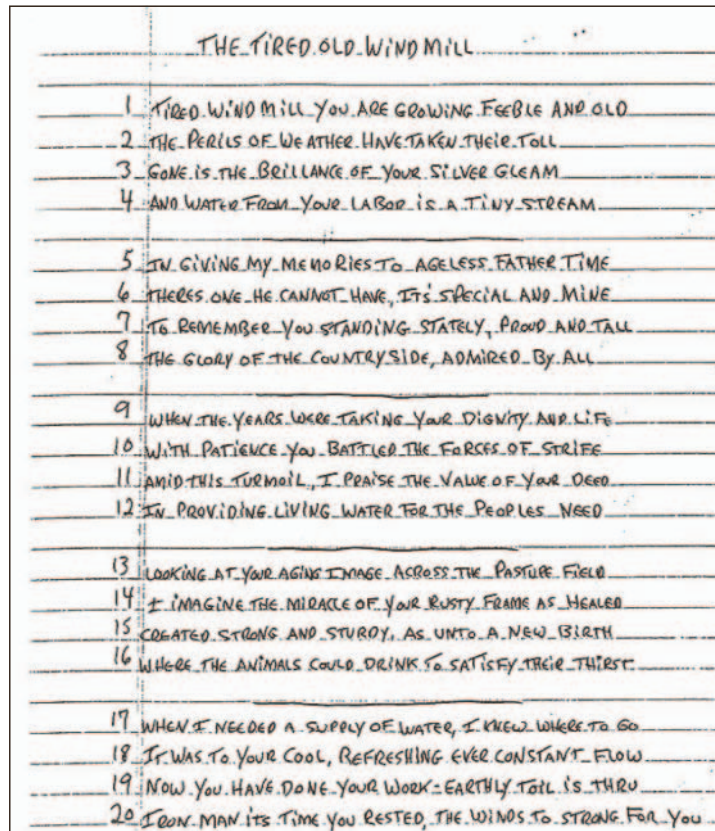 THE TIRED OLD WINDMILL
1 TIRED WINDMILL YOU ARE GROWING FEEBLE AND OLD
2 THE PERILS OF WEATHER HAVE TAKEN THEIR TOLL
3 GONE IS THE BRILLANCE OF YOUR SILVER GLEAM
4 AND WATER FROM YOUR LABOR IS A TINY STREAM
5 IN GIVING MY MEMORIES TO AGELESS FATHER TIME
6 THERES ONE HE CANNOT HAVE, ITS' SPECIAL AND MINE
7 TO REMEMBER YOU STANDING STATELY, PROUD AND TALL
8 THE GLORY OF THE COUNTRYSIDE, ADMIRED BY ALL
9 WHEN THE YEARS WERE TAKING YOUR DIGNITY AND LIFE
10 WITH PATIENCE YOU BATTLED THE FORCES OF STRIFE
11 AMID THIS TURMOIL, I PRAISE THE VALUE OF YOUR DEED
12 IN PROVIDING LIVING WATER FOR THE PEOPLES NEED
13 LOOKING AT YOUR AGING IMAGE ACROSS THE PASTURE FIELD
14 I IMAGINE THE MIRACLE OF YOUR RUSTY FRAME AS HEALED
15 CREATED STRONG AND STURDY, AS UNTO A NEW BIRTH
16 WHERE THE ANIMALS COULD DRINK TO SATISFY THEIR THIRST
17 WHEN I NEEDED A SUPPLY OF WATER, I KNEW WHERE TO GO
18 IT WAS TO YOUR COOL, REFRESHING EVER CONSTANT FLOW
19 NOW YOU HAVE DONE YOUR WORK - EARTHLY TOIL IS THRU
20 IRON MAN ITS TIME YOU RESTED, THE WINDS TO STRONG FOR YOU